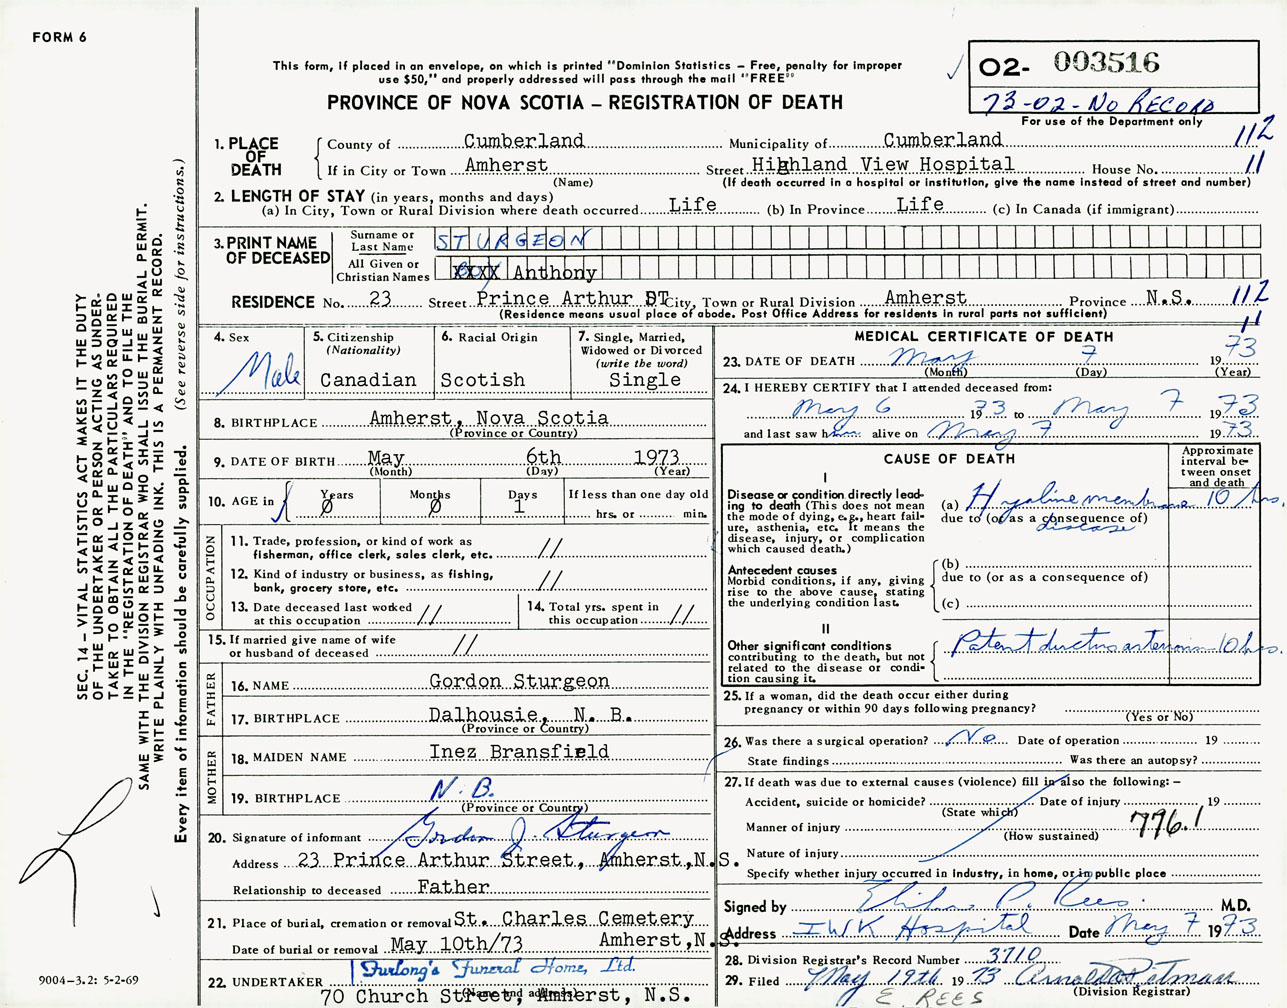 FORM 6
This form, if placed in an envelope, on which is printed "Dominion Statistics – Free, penalty for improper
use $50," and properly addressed will pass through the mail "FREE"
PROVINCE OF NOVA SCOTIA – REGISTRATION OF DEATH
02- 003516
73-02-No RECORD
For use of the Department only
1. PLACE OF DEATH
County of Cumberland Municipality of Cumberland 112
If in City or Town Amherst Street Highland View Hospital House No. 11
(Name) (If death occurred in a hospital or institution, give the name instead of street and number)
2. LENGTH OF STAY (in years, months and days)
(a) In City, Town or Rural Division where death occurred Life (b) In Province Life (c) In Canada (if immigrant)
3. PRINT NAME OF DECEASED
Surname or Last Name STURGEON
All Given or Christian Names XXXX Anthony
RESIDENCE No. 23 Street Prince Arthur ST City, Town or Rural Division Amherst Province N.S. 112
(Residence means usual place of abode. Post Office Address for residents in rural parts not sufficient) 11
4. Sex Male
5. Citizenship (Nationality) Canadian
6. Racial Origin Scotish
7. Single, Married, Widowed or Divorced (write the word) Single
8. BIRTHPLACE Amherst, Nova Scotia
(Province or Country)
9. DATE OF BIRTH May 6th 1973
(Month) (Day) (Year)
10. AGE in Years 0 Months 0 Days 1 If less than one day old
hrs. or min.
OCCUPATION
11. Trade, profession, or kind of work as
fisherman, office clerk, sales clerk, etc. //
12. Kind of industry or business, as fishing,
bank, grocery store, etc. //
13. Date deceased last worked
at this occupation //
14. Total yrs. spent in
this occupation //
15. If married give name of wife
or husband of deceased //
FATHER
16. NAME Gordon Sturgeon
17. BIRTHPLACE Dalhousie, N. B.
(Province or Country)
MOTHER
18. MAIDEN NAME Inez Bransfield
19. BIRTHPLACE N. B.
(Province or Country)
20. Signature of informant Gordon J. Sturgeon
Address 23 Prince Arthur Street, Amherst, N.S.
Relationship to deceased Father
21. Place of burial, cremation or removal St. Charles Cemetery
Date of burial or removal May 10th/73 Amherst, N.S.
22. UNDERTAKER Furlong's Funeral Home, Ltd.
(Name and address)
70 Church Street, Amherst, N.S.
MEDICAL CERTIFICATE OF DEATH
23. DATE OF DEATH May 7 19 73
(Month) (Day) (Year)
24. I HEREBY CERTIFY that I attended deceased from:
May 6 1973 to May 7 1973
and last saw him alive on May 7 1973
CAUSE OF DEATH
Approximate interval between onset and death
I
Disease or condition directly lead-
ing to death (This does not mean
the mode of dying, e.g., heart fail-
ure, asthenia, etc. It means the
disease, injury, or complication
which caused death.)
(a) Hyaline membrane 10 hrs.
due to (or as a consequence of)
disease
Antecedent causes
Morbid conditions, if any, giving
rise to the above cause, stating
the underlying condition last.
(b)
due to (or as a consequence of)
(c)
II
Other significant conditions
contributing to the death, but not
related to the disease or condi-
tion causing it.
Patent ductus arteriosus 10 hrs.
25. If a woman, did the death occur either during
pregnancy or within 90 days following pregnancy?
(Yes or No)
26. Was there a surgical operation? No Date of operation 19
State findings Was there an autopsy?
27. If death was due to external causes (violence) fill in also the following: –
Accident, suicide or homicide? Date of injury 19
(State which)
Manner of injury 776.1
(How sustained)
Nature of injury
Specify whether injury occurred in industry, in home, or in public place
Signed by P. Rees M.D.
Address IWK Hospital Date May 7 1973
28. Division Registrar's Record Number 3710
29. Filed May 19th 1973
(Division Registrar)
E. REES
SEC. 14 – VITAL STATISTICS ACT MAKES IT THE DUTY
OF THE UNDERTAKER OR PERSON ACTING AS UNDER-
TAKER TO OBTAIN ALL THE PARTICULARS REQUIRED
IN THE "REGISTRATION OF DEATH" AND TO FILE THE
SAME WITH THE DIVISION REGISTRAR WHO SHALL ISSUE THE BURIAL PERMIT.
WRITE PLAINLY WITH UNFADING INK. THIS IS A PERMANENT RECORD.
Every item of information should be carefully supplied. (See reverse side for instructions.)
9004–3.2: 5-2-69